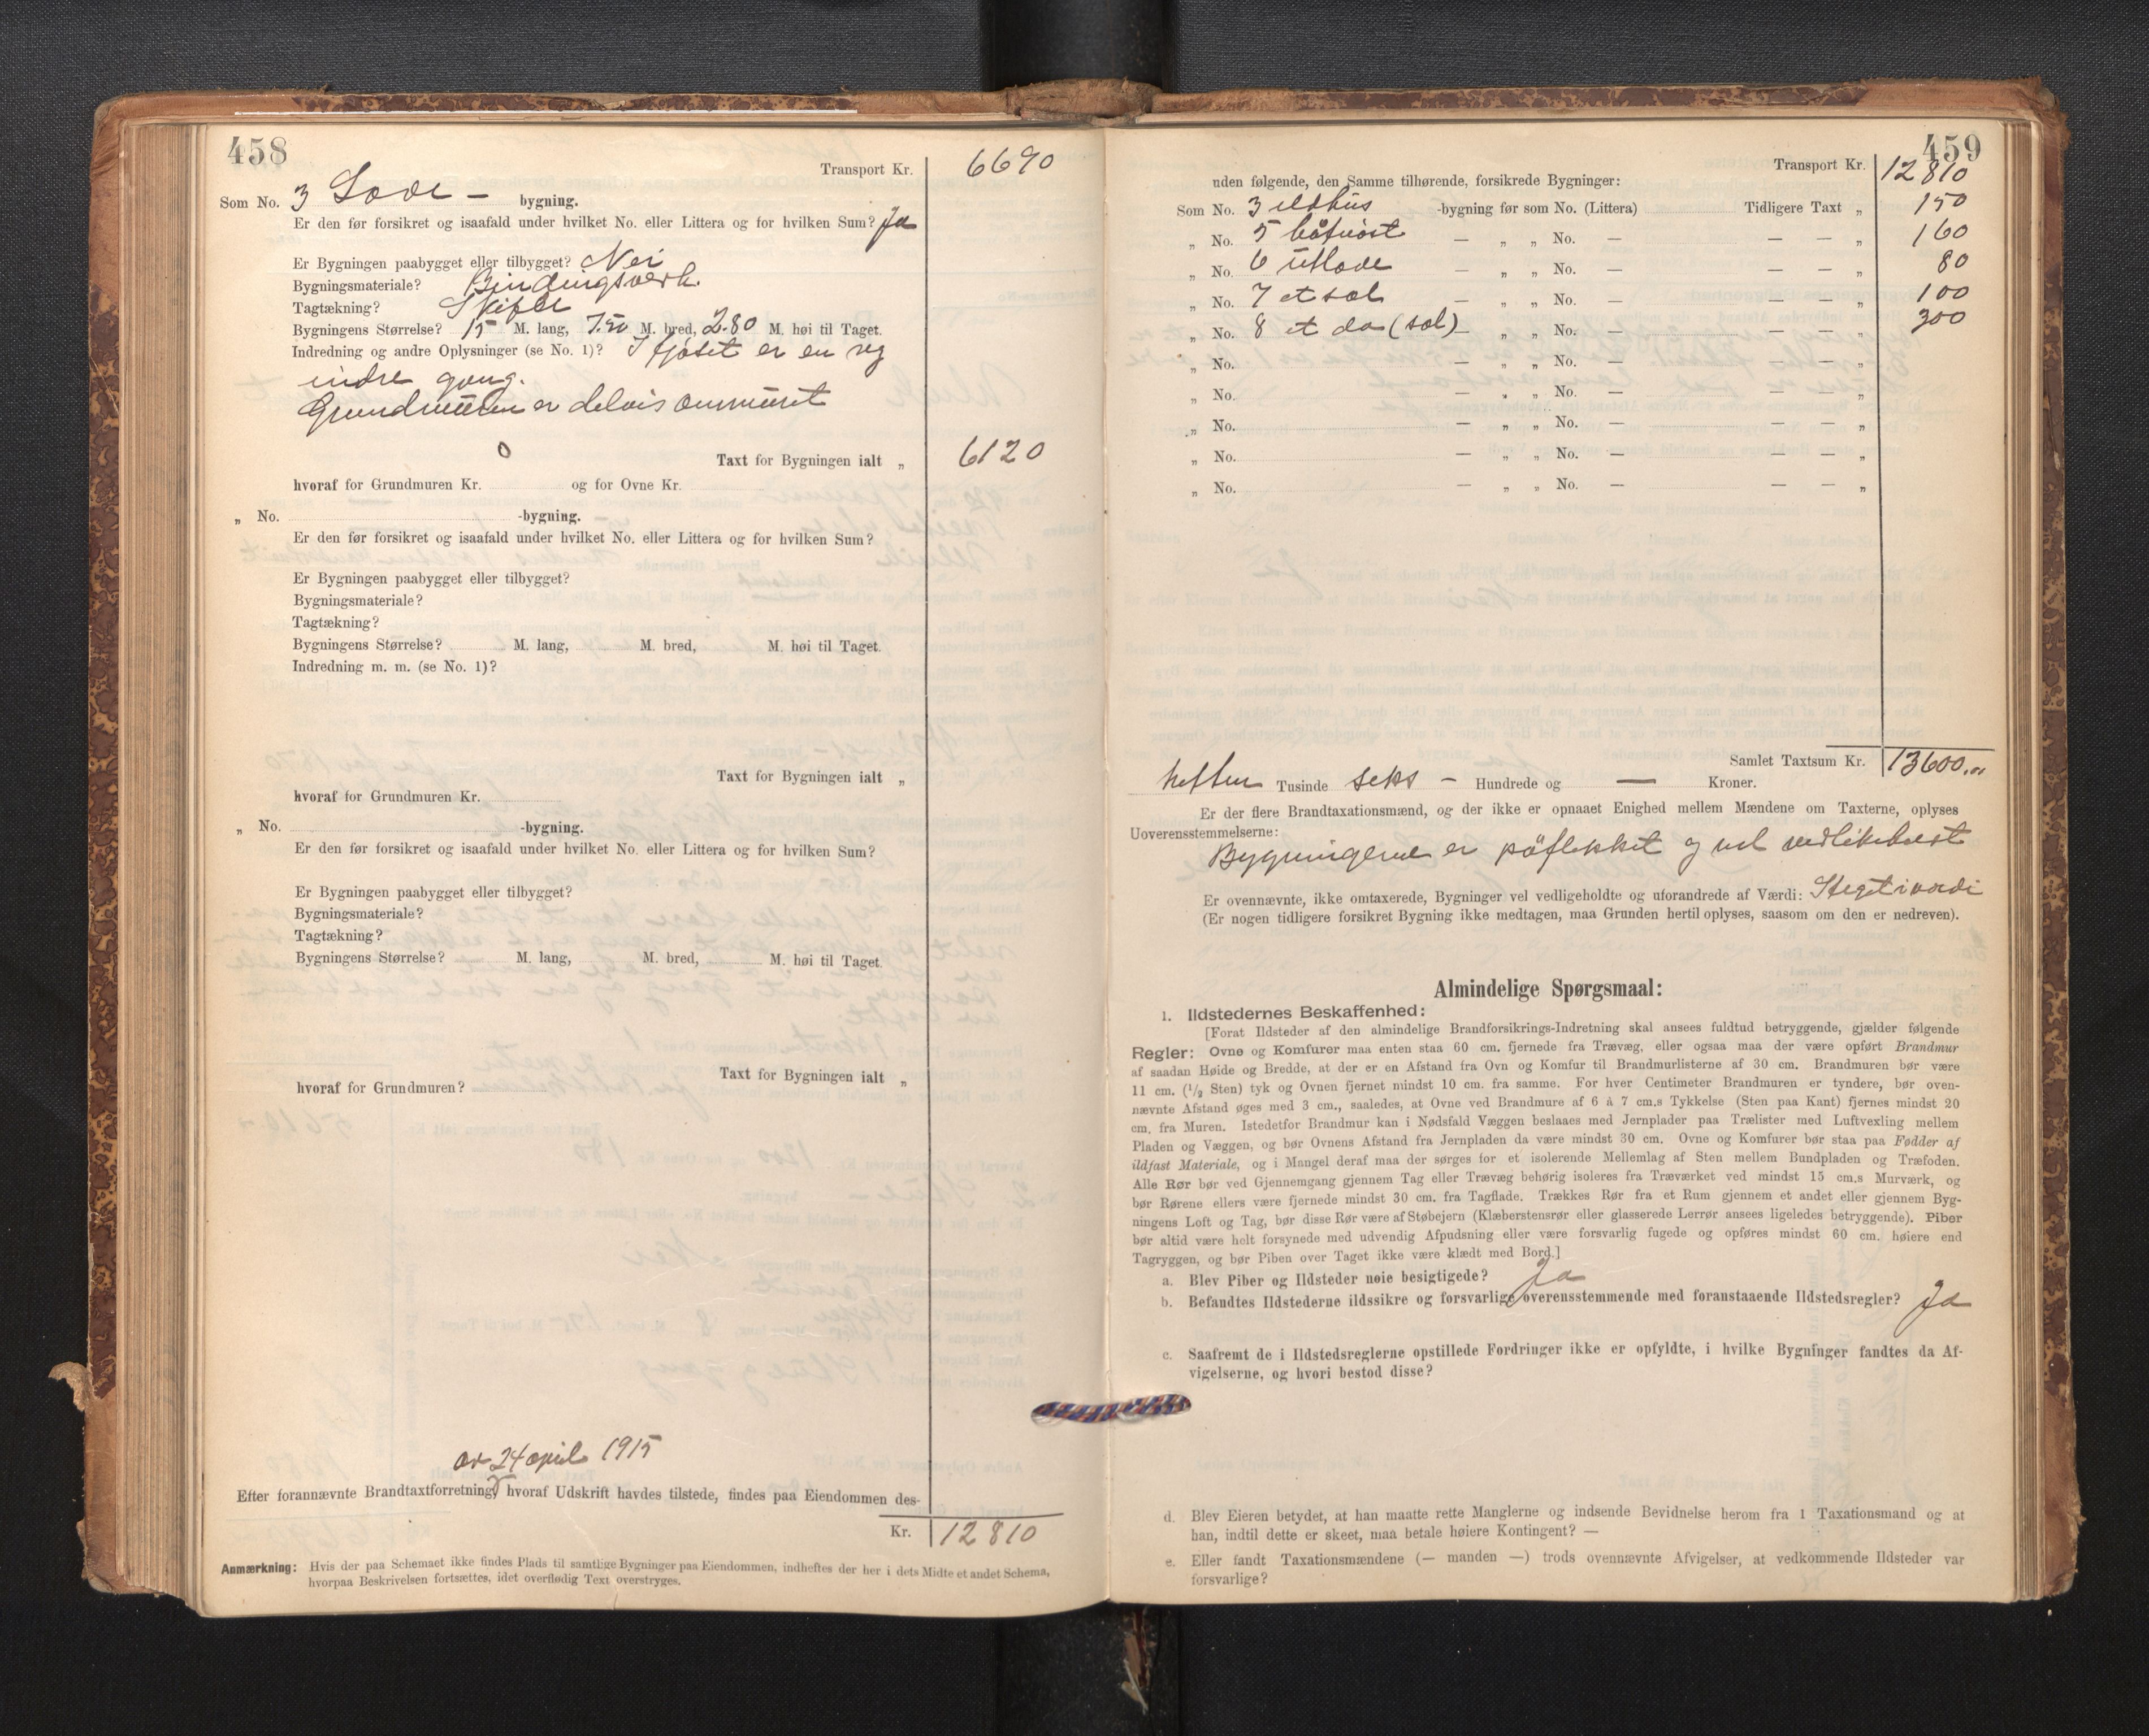 458
Transport Kr. 6690
Som No. 3 Løde - bygning.
Er den før forsikret og isaafald under hvilket No. eller Littera og for hvilken Sum? Ja
Er Bygningen paabygget eller tilbygget? Nei
Bygningsmateriale? Bindingsverk
Tagtækning? Skifer
Bygningens Størrelse? 15 M. lang, 7.50 M. bred, 2.80 M. høi til Taget.
Indredning og andre Oplysninger (se No. 1)? I fjøset er en ny
indre gang.
Grundmuren er delvis ommuret
0
Taxt for Bygningen ialt „ 6120
hvoraf for Grundmuren Kr. og for Ovne Kr.
„ No. -bygning.
Er den før forsikret og isaafald under hvilket No. eller Littera og for hvilken Sum?
Er Bygningen paabygget eller tilbygget?
Bygningsmateriale?
Tagtækning?
Bygningens Størrelse? M. lang, M. bred, M. høi til Taget.
Indredning m. m. (se No. 1)?
Taxt for Bygningen ialt „
hvoraf for Grundmuren Kr.
„ No. -bygning.
Er den før forsikret og isaafald under hvilket No. eller Littera og for hvilken Sum?
Er Bygningen paabygget eller tilbygget?
Bygningsmateriale?
Tagtækning?
Bygningens Størrelse? M. lang, M. bred, M. høi til Taget.
Taxt for Bygningen ialt „
hvoraf for Grundmuren?
av 24 april 1915
Efter forannævnte Brandtaxtforretning, hvoraf Udskrift havdes tilstede, findes paa Eiendommen des-
Kr. 12810
Anmærkning: Hvis der paa Schemaet ikke findes Plads til samtlige Bygninger paa Eiendommen, indheftes der her i dets Midte et andet Schema,
hvorpaa Beskrivelsen fortsættes, idet overflødig Text overstryges.
459
Transport Kr. 12810
uden følgende, den Samme tilhørende, forsikrede Bygninger:
Som No. 3 ildhus -bygning før som No. (Littera) Tidligere Taxt „ 150
„ No. 5 båtnøst — „ „ No. — — — „ 160
„ No. 6 utløde — „ „ No. — — — „ 80
„ No. 7 et sel — „ „ No. — — — „ 100
„ No. 8 et do (sel) — „ „ No. — — — „ 300
„ No. — „ „ No. — — — „
„ No. — „ „ No. — — — „
„ No. — „ „ No. — — — „
„ No. — „ „ No. — — — „
„ No. — „ „ No. — — — „
Samlet Taxtsum Kr. 13600.00
tretten Tusinde seks - Hundrede og — Kroner.
Er der flere Brandtaxationsmænd, og der ikke er opnaaet Enighed mellem Mændene om Taxterne, oplyses
Uoverensstemmelserne:
Bygningerne er påflekket og vel vedlikeholdt
Er ovennævnte, ikke omtaxerede, Bygninger vel vedligeholdte og uforandrede af Værdi: Steget i værdi
(Er nogen tidligere forsikret Bygning ikke medtagen, maa Grunden hertil oplyses, saasom om den er nedreven).
Almindelige Spørgsmaal:
1. Ildstedernes Beskaffenhed:
[Forat Ildsteder af den almindelige Brandforsikrings-Indretning skal ansees fuldtud betryggende, gjælder følgende
Regler: Ovne og Komfurer maa enten staa 60 cm. fjernede fra Trævæg, eller ogsaa maa der være opført Brandmur
af saadan Høide og Bredde, at der er en Afstand fra Ovn og Komfur til Brandmurlisterne af 30 cm. Brandmuren bør være
11 cm. (½ Sten) tyk og Ovnen fjernet mindst 10 cm. fra samme. For hver Centimeter Brandmuren er tyndere, bør oven-
nævnte Afstand øges med 3 cm., saaledes, at Ovne ved Brandmure af 6 à 7 cm.s Tykkelse (Sten paa Kant) fjernes mindst 20
cm. fra Muren. Istedetfor Brandmur kan i Nødsfald Væggen beslaaes med Jernplader paa Trælister med Luftvexling mellem
Pladen og Væggen, og bør Ovnens Afstand fra Jernpladen da være mindst 30 cm. Ovne og Komfurer bør staa paa Fødder af
ildfast Materiale, og i Mangel deraf maa der sørges for et isolerende Mellemlag af Sten mellem Bundpladen og Træfoden.
Alle Rør bør ved Gjennemgang gjennem Tag eller Trævæg behørig isoleres fra Træværket ved mindst 15 cm.s Murværk, og
bør Rørene ellers være fjernede mindst 30 cm. fra Tagflade. Trækkes Rør fra et Rum gjennem et andet eller gjennem Byg-
ningens Loft og Tag, bør disse Rør være af Støbejern (Klæberstensrør eller glasserede Lerrør ansees ligeledes betryggende). Piber
bør altid være helt forsynede med udvendig Afpudsning eller være forsvarlig fugede og opføres mindst 60 cm. høiere end
Tagryggen, og bør Piben over Taget ikke være klædt med Bord.]
a. Blev Piber og Ildsteder nøie besigtigede? Ja
b. Befandtes Ildstederne ildssikre og forsvarlige overensstemmende med foranstaaende Ildstedsregler? Ja
c. Saafremt de i Ildstedsreglerne opstillede Fordringer ikke er opfyldte, i hvilke Bygninger fandtes da Af-
vigelserne, og hvori bestod disse?
d. Blev Eieren betydet, at han maatte rette Manglerne og indsende Bevidnelse herom fra 1 Taxationsmand og at
han, indtil dette er skeet, maa betale høiere Kontingent? —
e. Eller fandt Taxationsmændene (— manden —) trods ovennævnte Afvigelser, at vedkommende Ildsteder var
forsvarlige?